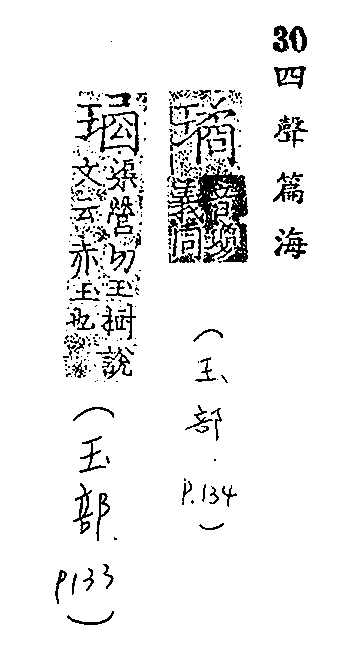 30四聲篇海
音瓊
義同
(玉部.P.134)
渠營切玉樹說
文云亦玉也
(玉部.P133)